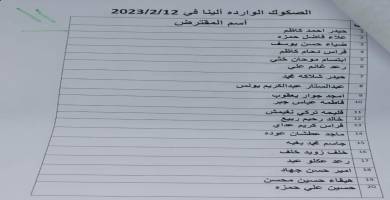 الصكوك الوارده ألينا في 2023/2/12
أسم المقترض
1 حيدر احمد كاظم
2 علاء فاضل حمزه
3 ضياء حسن يوسف
4 فراس دحام كاظم
5 ابتسام موحان ختي
6 رعد غانم علي
7 حيدر شلاكه
8 عبدالستار عبدالكريم يونس
9 امجد جبار يعقوب
10 فاطمه عباس جبر
11 فليحه تركي نغيمش
12 خالد رحيم ربيع
13 فراس كريم عداي
14 ماجد عطشان عوده
15 جاسم
16 خلف زويد خلف
17 رعد عكلو عبد
18 امير حسن جهاد
19 هيفاء حسين محسن
20 حسين علي حمزه